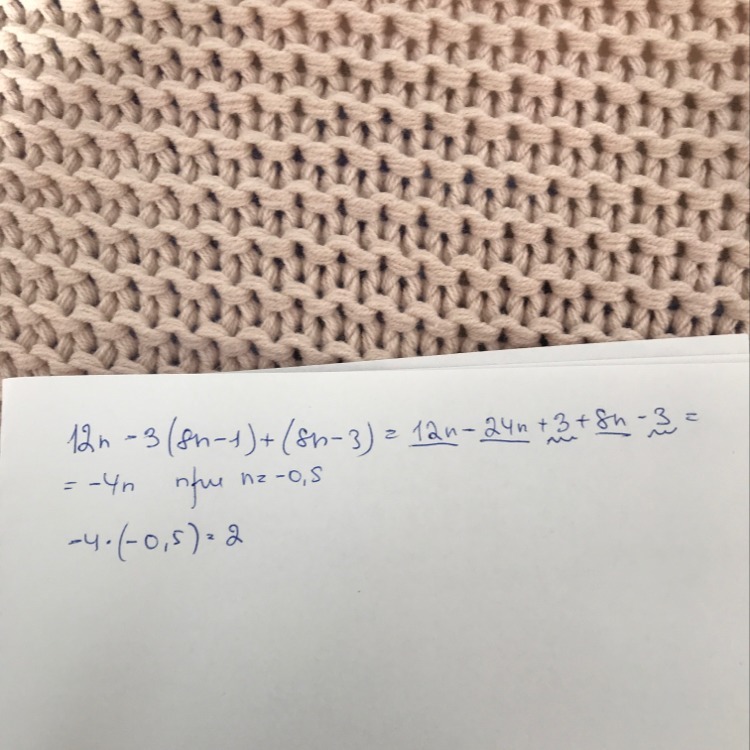 12n - 3(8n-1)+(8n-3) = 12n - 24n + 3 + 8n - 3 =
= -4n при n = -0,5
-4·(-0,5) = 2